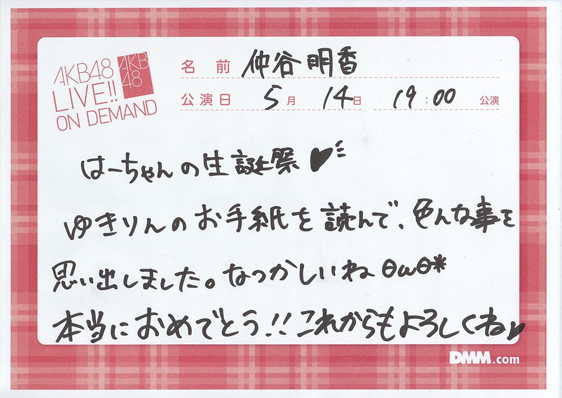 AKB48
LIVE!!
ON DEMAND
AKB
48
名前 仲谷明香
公演日 5月 14日 19:00 公演
はーちゃんの生誕祭♥
ゆきりんのお手紙を読んで、色んな事を
思い出しました。なつかしいねθωθ*
本当におめでとう!!これからもよろしくね♥
DMM.com